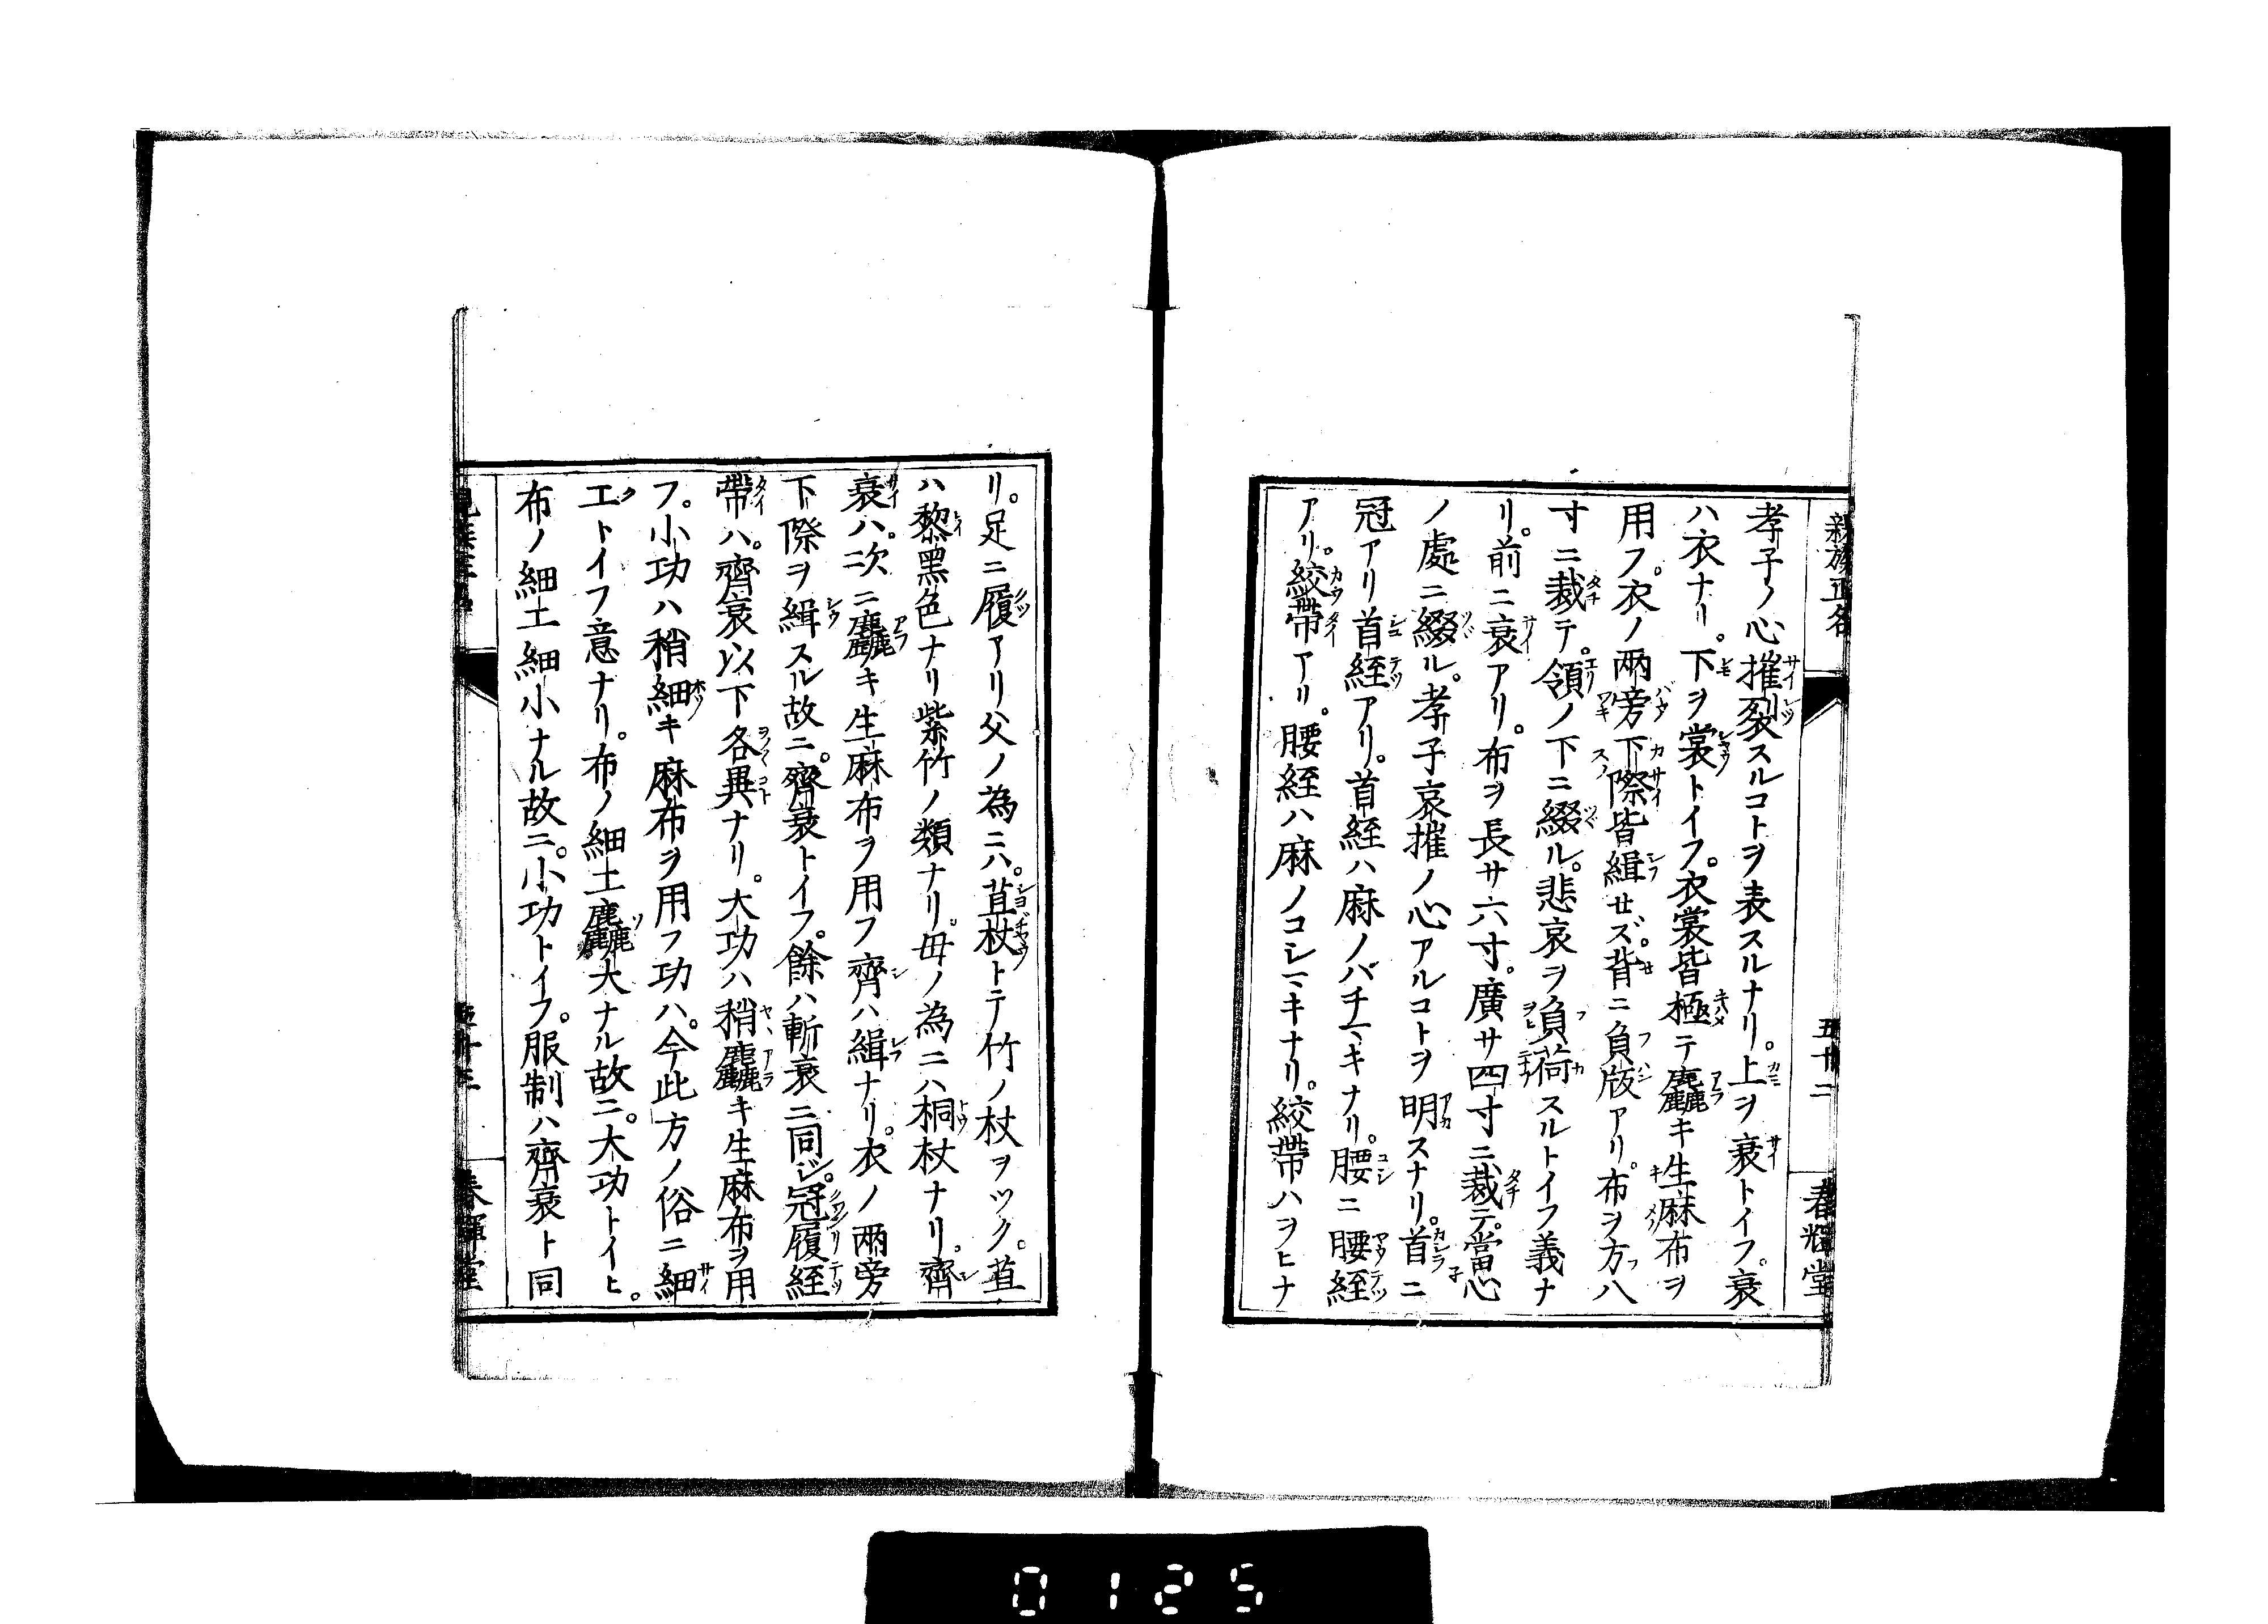 親族正名
五十二
春輝堂
孝子ノ心摧裂スルコトヲ表スルナリ。上ヲ衰トイフ。衰
ハ衣ナリ。下ヲ裳トイフ。衣裳皆極テ麤キ生麻布ヲ
用フ。衣ノ兩旁下際皆緝せズ。背ニ負版アリ。布ヲ方八
寸ニ裁テ。領ノ下ニ綴ル。悲哀ヲ負荷スルトイフ義ナ
リ。前ニ衰アリ。布ヲ長サ六寸。廣サ四寸ニ裁テ。當心
ノ處ニ綴ル。孝子哀摧ノ心アルコトヲ明スナリ。首ニ
冠アリ首絰アリ。首絰ハ麻ノバチマキナリ。腰ニ腰絰
アリ。絞帶アリ。腰絰ハ麻ノコシマキナリ。絞帶ハヲヒナ
リ。足ニ履アリ父ノ為ニハ。苴杖トテ竹ノ杖ヲツク。苴
ハ黎黑色ナリ紫竹ノ類ナリ。毋ノ為ニハ桐杖ナリ。齊
衰ハ。次ニ麤キ生麻布ヲ用フ齊ハ緝ナリ。衣ノ兩旁
下際ヲ緝スル故ニ。齊衰トイフ。餘ハ斬衰ニ同ジ。冠履絰
帶ハ。齊衰以下各異ナリ。大功ハ稍麤キ生麻布ヲ用
フ。小功ハ稍細キ麻布ヲ用フ功ハ。今此方ノ俗ニ細
工トイフ意ナリ。布ノ細工麤大ナル故ニ。大功トイヒ。
布ノ細工細小ナル故ニ。小功トイフ。服制ハ齊衰ト同
春輝堂
0125